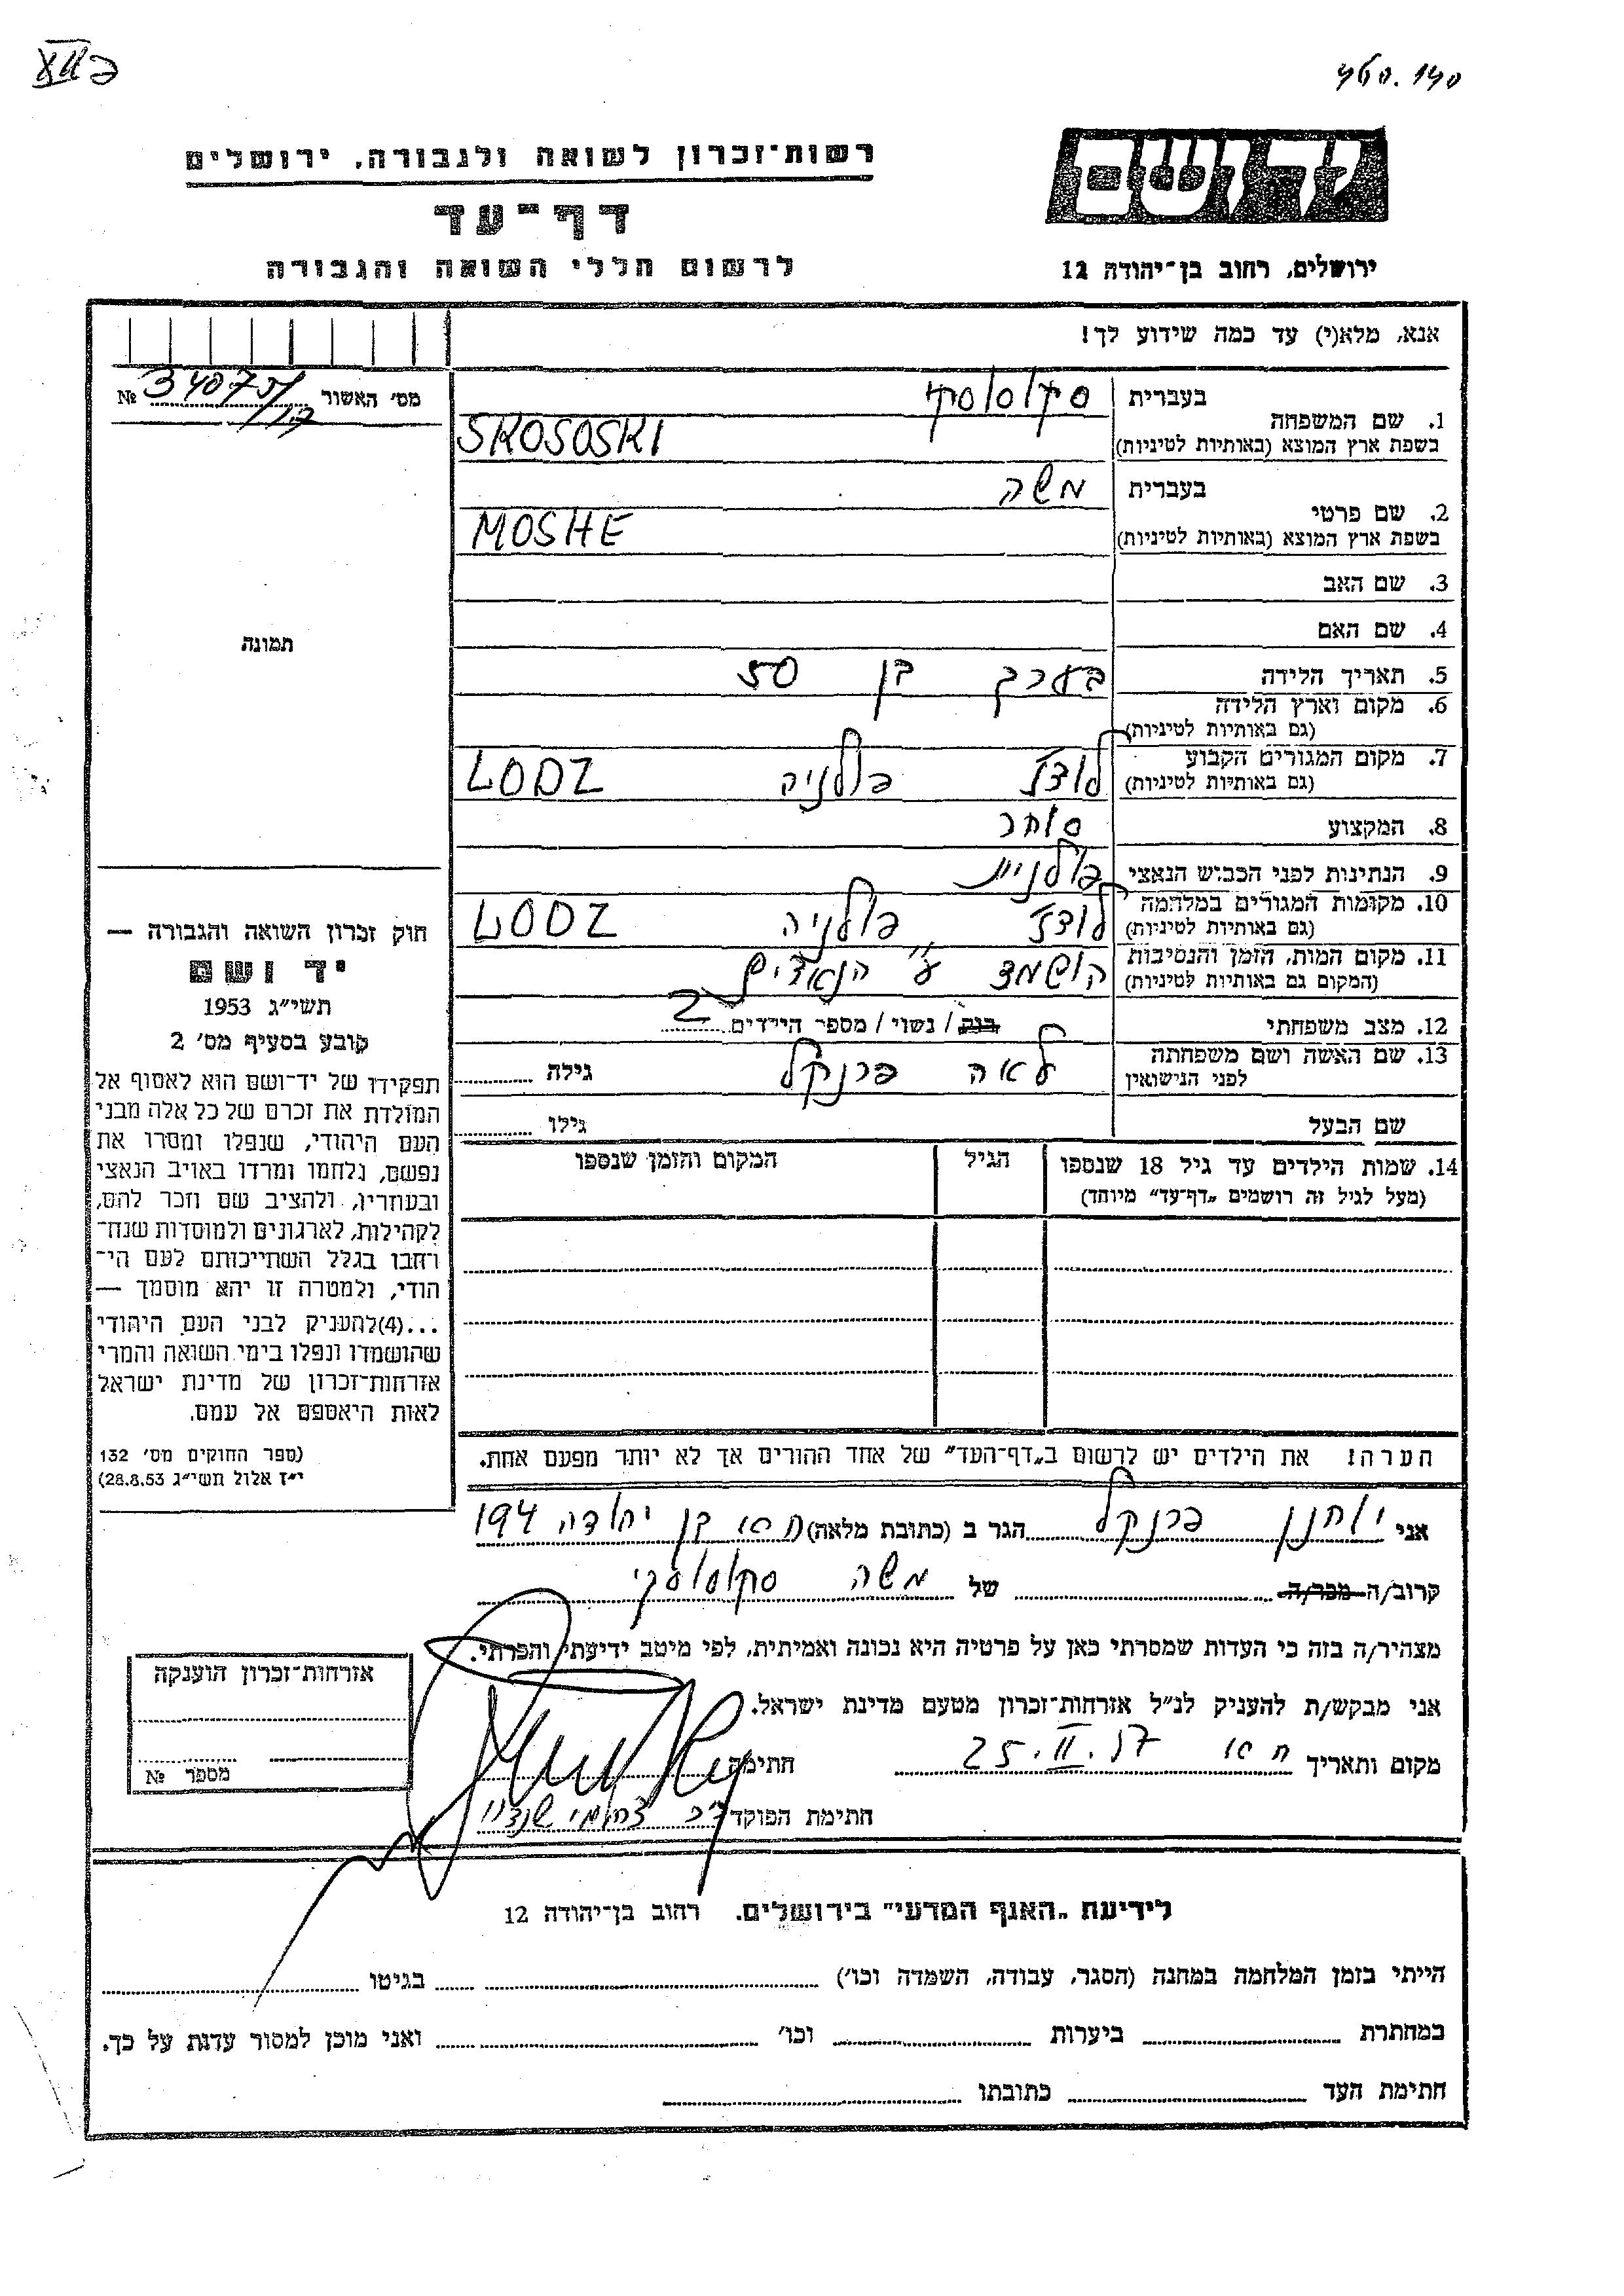 460.140
רשות־זכרון לשואה ולגבורה, ירושלים
דף־עד
לרשום חללי השואה והגבורה
ירושלים, רחוב בן־יהודה 12
אנא, מלא(י) עד כמה שידוע לך!
מס׳ האשור № 34075/
תמונה
בעברית סקוסוסקי
1. שם המשפחה
בשפת ארץ המוצא (באותיות לטיניות) SKOSOSKI
בעברית משה
2. שם פרטי
בשפת ארץ המוצא (באותיות לטיניות) MOSHE
3. שם האב
4. שם האם
5. תאריך הלידה בערך בן 50
6. מקום וארץ הלידה
(גם באותיות לטיניות)
7. מקום המגורים הקבוע
(גם באותיות לטיניות) לודז פולניה LODZ
8. המקצוע סוחר
9. הנתינות לפני הכבוש הנאצי פולנית
10. מקומות המגורים במלחמה
(גם באותיות לטיניות) לודז פולניה LODZ
11. מקום המות, הזמן והנסיבות
(המקום גם באותיות לטיניות) הושמד ע״י הנאצים
12. מצב משפחתי רווק / נשוי / מספר הילדים 2
13. שם האשה ושם משפחתה
לפני הנישואין לאה פרנקל גילה
שם הבעל גילו
14. שמות הילדים עד גיל 18 שנספו הגיל המקום והזמן שנספו
(מעל לגיל זה רושמים „דף־עד״ מיוחד)
חוק זכרון השואה והגבורה —
יד ושם
תשי״ג 1953
קובע בסעיף מס׳ 2
תפקידו של יד־ושם הוא לאסוף אל
המולדת את זכרם של כל אלה מבני
העם היהודי, שנפלו ומסרו את
נפשם, נלחמו ומרדו באויב הנאצי
ובעוזריו, ולהציב שם וזכר להם,
לקהילות, לארגונים ולמוסדות שנח־
רחבו בגלל השתייכותם לעם הי־
הודי, ולמטרה זו יהא מוסמך —
...(4)להעניק לבני העם היהודי
שהושמדו ונפלו בימי השואה והמרי
אזרחות־זכרון של מדינת ישראל
לאות היאספם אל עמם.
(ספר החוקים מס׳ 132
י״ז אלול תשי״ג 28.8.53)
הערה: את הילדים יש לרשום ב„דף־העד״ של אחד ההורים אך לא יותר מפעם אחת.
אני יוחנן פרנקל הגר ב (כתובת מלאה) בן יהודה 194
קרוב/ה מכר/ה של משה סקוסוסקי
מצהיר/ה בזה כי העדות שמסרתי כאן על פרטיה היא נכונה ואמיתית, לפי מיטב ידיעתי והכרתי.
אני מבקש/ת להעניק לנ״ל אזרחות־זכרון מטעם מדינת ישראל.
מקום ותאריך 25.II.57 חתימה
חתימת הפוקד
אזרחות־זכרון הוענקה
מספר №
לידיעת „האגף המדעי״ בירושלים. רחוב בן־יהודה 12
הייתי בזמן המלחמה במחנה (הסגר, עבודה, השמדה וכו׳) בגיטו
במחתרת ביערות וכו׳ ואני מוכן למסור עדות על כך.
חתימת העד כתובתו